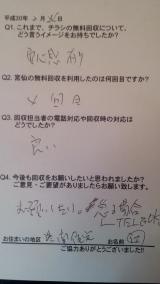 平成30年 2月 日
Q1. これまで、チラシの無料回収について、
どう言うイメージをお持ちでしたか?
安心感 有り
Q2. 富仙の無料回収を利用したのは何回目ですか?
回目
Q3. 回収担当者の電話対応や回収時の対応は
どうでしたか?
良い
Q4. 今後も回収をお願いしたいと思われましたか?
ご意見・ご要望がありましたらお願い致します。
お願いしたい。
お住まいの地区
お名前
ご協力ありがとうございました!!